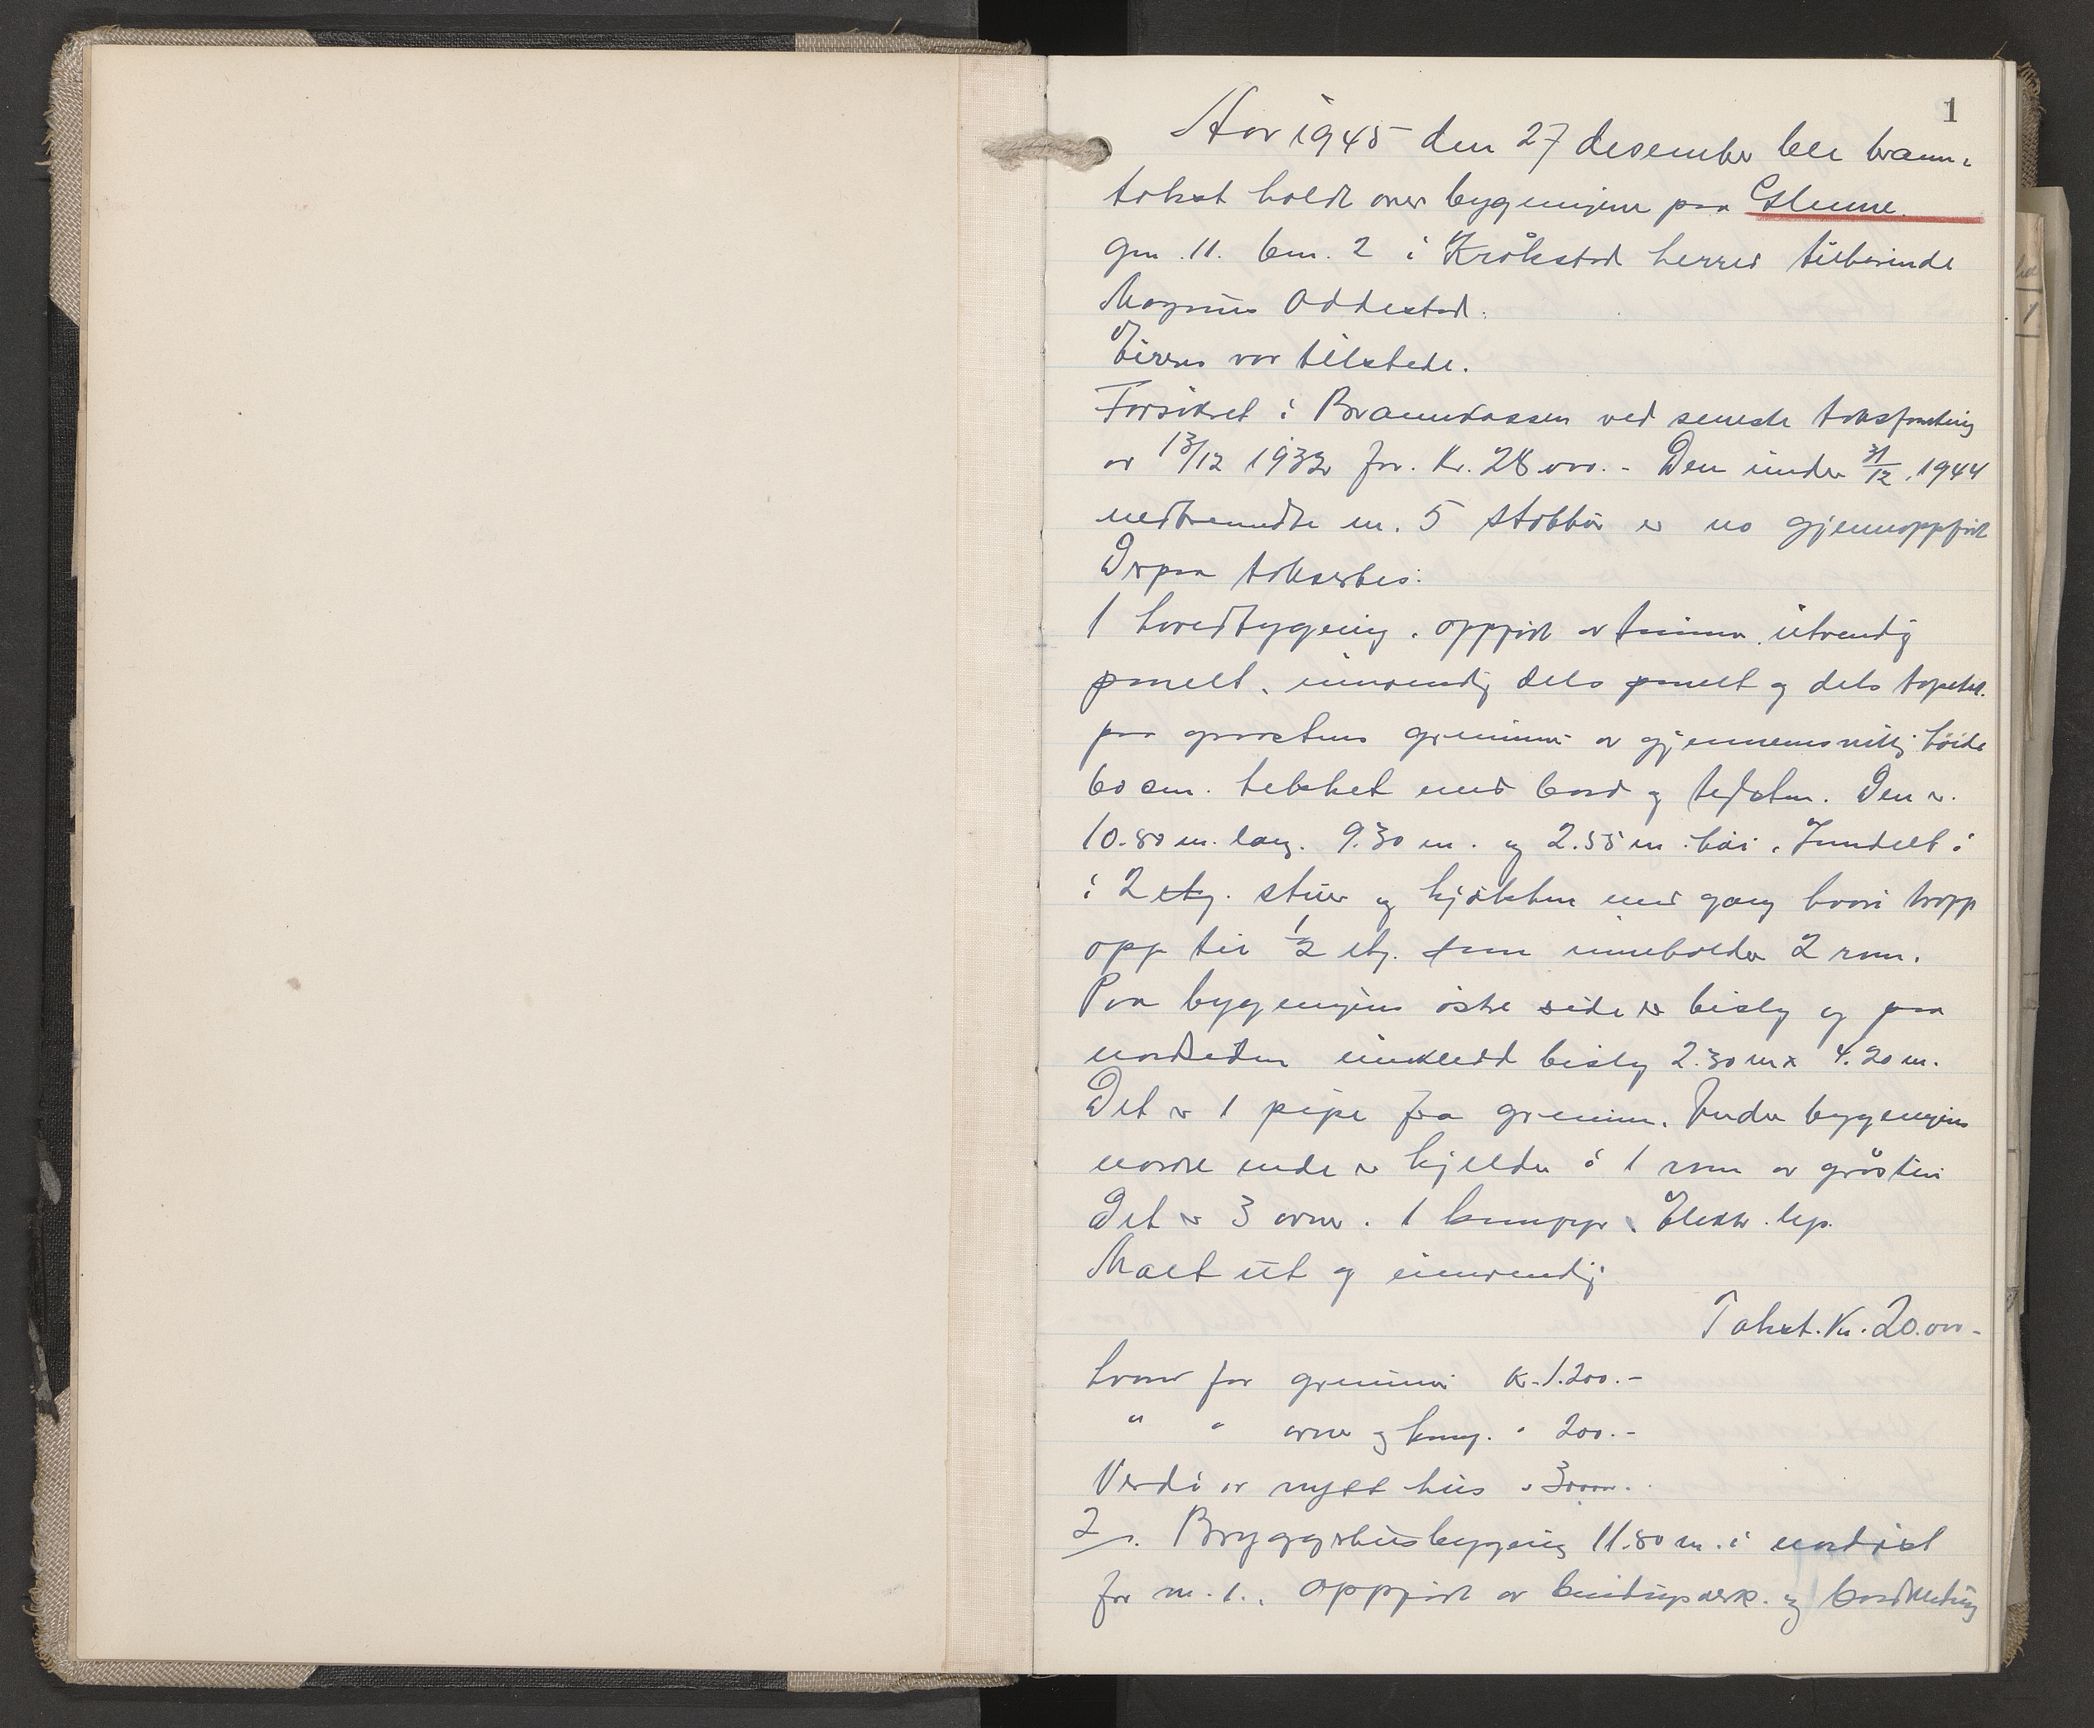 1
Aar 1945 den 27 desember ble brann-
takst holdt over bygningene paa
gm. 11. bm. 2 i Kråkstad herred tilhørende
Magnus Oddestad.
Eieren var tilstede.
Forsikret i Brannkassen ved seneste taksforretning
av 13/12 1932 for Kr. 28000.- Den under 31/12. 1944
nedbrendte m. 5 stabbur er no gjennoppført
Derpaa takseres:
1 hovedbygning. oppført av tømmer utvendig
panelt. innvendig dels panelt og dels tapetsert.
paa graastens grunnmur av gjennemsnitlig høide
60 cm. tekket med bord og teglsten. Den er.
10.80 m. lang. 9.30 m. og 2.55 m. høi. Inndelt i
i 2 etg. stuer og kjøkken med gang hvori trapp
opp til 1/2 etg. som inneholder 2 rom.
Paa bygningens østre side er bislag og paa
nordsiden innkledd bislag 2.30 m x 4.20 m.
Det er 1 pipe fra grunnen. Under bygningens
nordre ende er kjelder i 1 rom av gråstein
Det er 3 ovner. 1 komfyr. Elektr. lys.
Malt ut og innvendig
Takst. Kr. 20.000-
hvorav for grunnmur Kr. 1.200.-
" " ovner og komf. " 200.-
Verdi av nytt hus " 30000.
2. Bryggerhusbygning 11.80 m. i nordøst
for m. 1. oppført av bindingsverk og bordkledning